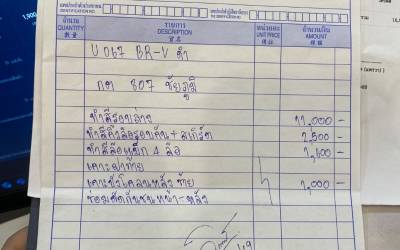 1,500
เลขประจำตัวประชาชน
IDENTIFICATION NO.
จำนวน รายการ หน่วยละ จำนวนเงิน
QUANTITY DESCRIPTION UNIT PRICE AMOUNT
BR-V ดำ
กต 807 ชัยภูมิ
ทำสีรอบล่าง 11,000 -
ทำสีคิ้วล้อรอบคัน + สเกิร์ต 2,500
ทำสีล้อแม็ก 4 ล้อ
เคาะฝาท้าย
เคาะบังโคลนหลังซ้าย 1,000 -
ซ่อมสีกันชนหน้า-หลัง